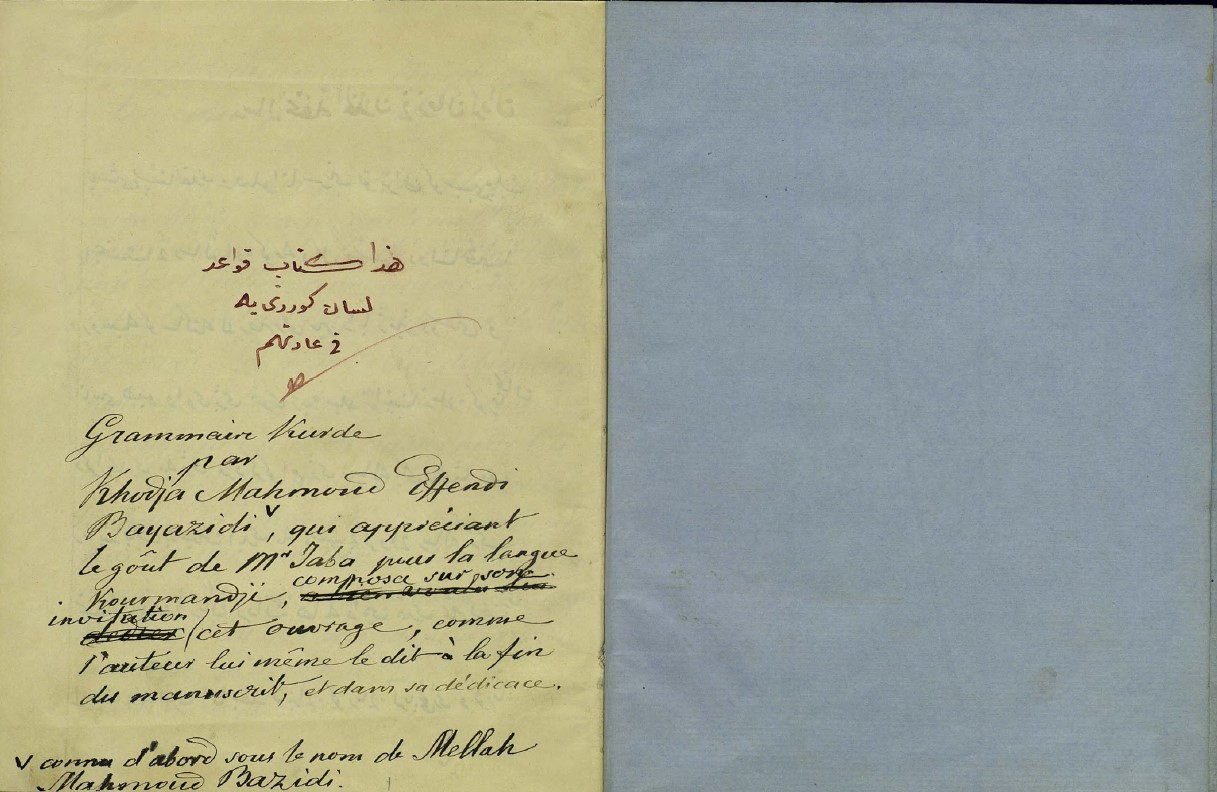 هذا كتاب قواعد
لسان كوردى يه
فى عادتهم
Grammaire Kurde
par
Khodja Mahmoud Effendi
Bayazidi v, qui appréciant
le goût de Mr Jaba pour la langue
Kourmandji, composa sur son
invitation cet ouvrage, comme
l'auteur lui même le dit à la fin
du manuscrit, et dans sa dédicace.
v connu d'abord sous le nom de Mellah
Mahmoud Bazidi.